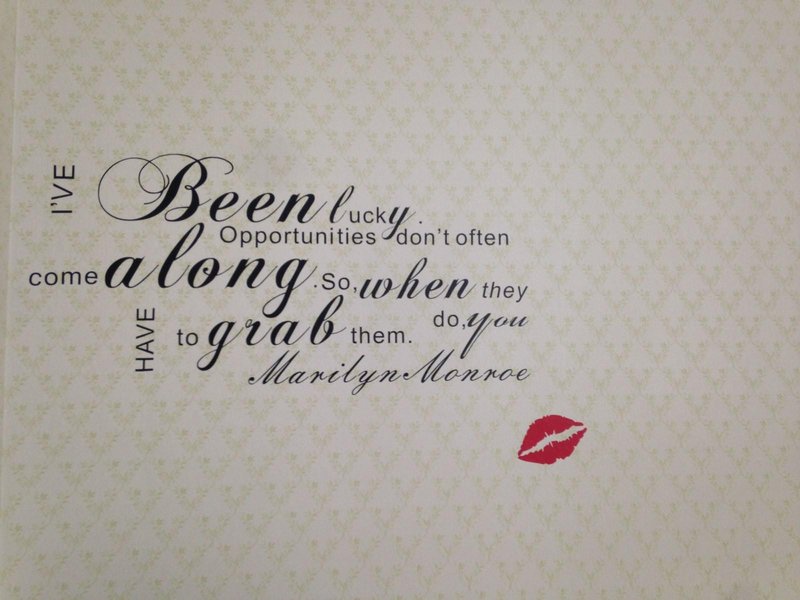 I'VE Been lucky.
Opportunities don't often
come along. So, when they
do, you
HAVE to grab them.
Marilyn Monroe